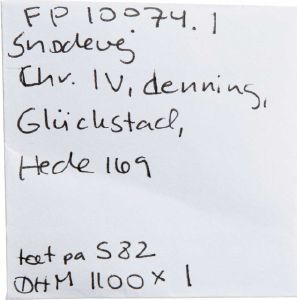 FP 10074.1
Snodevej
Chr. IV, denning,
Glückstad,
Hede 169
tæt på S82
DHM 1100 x 1